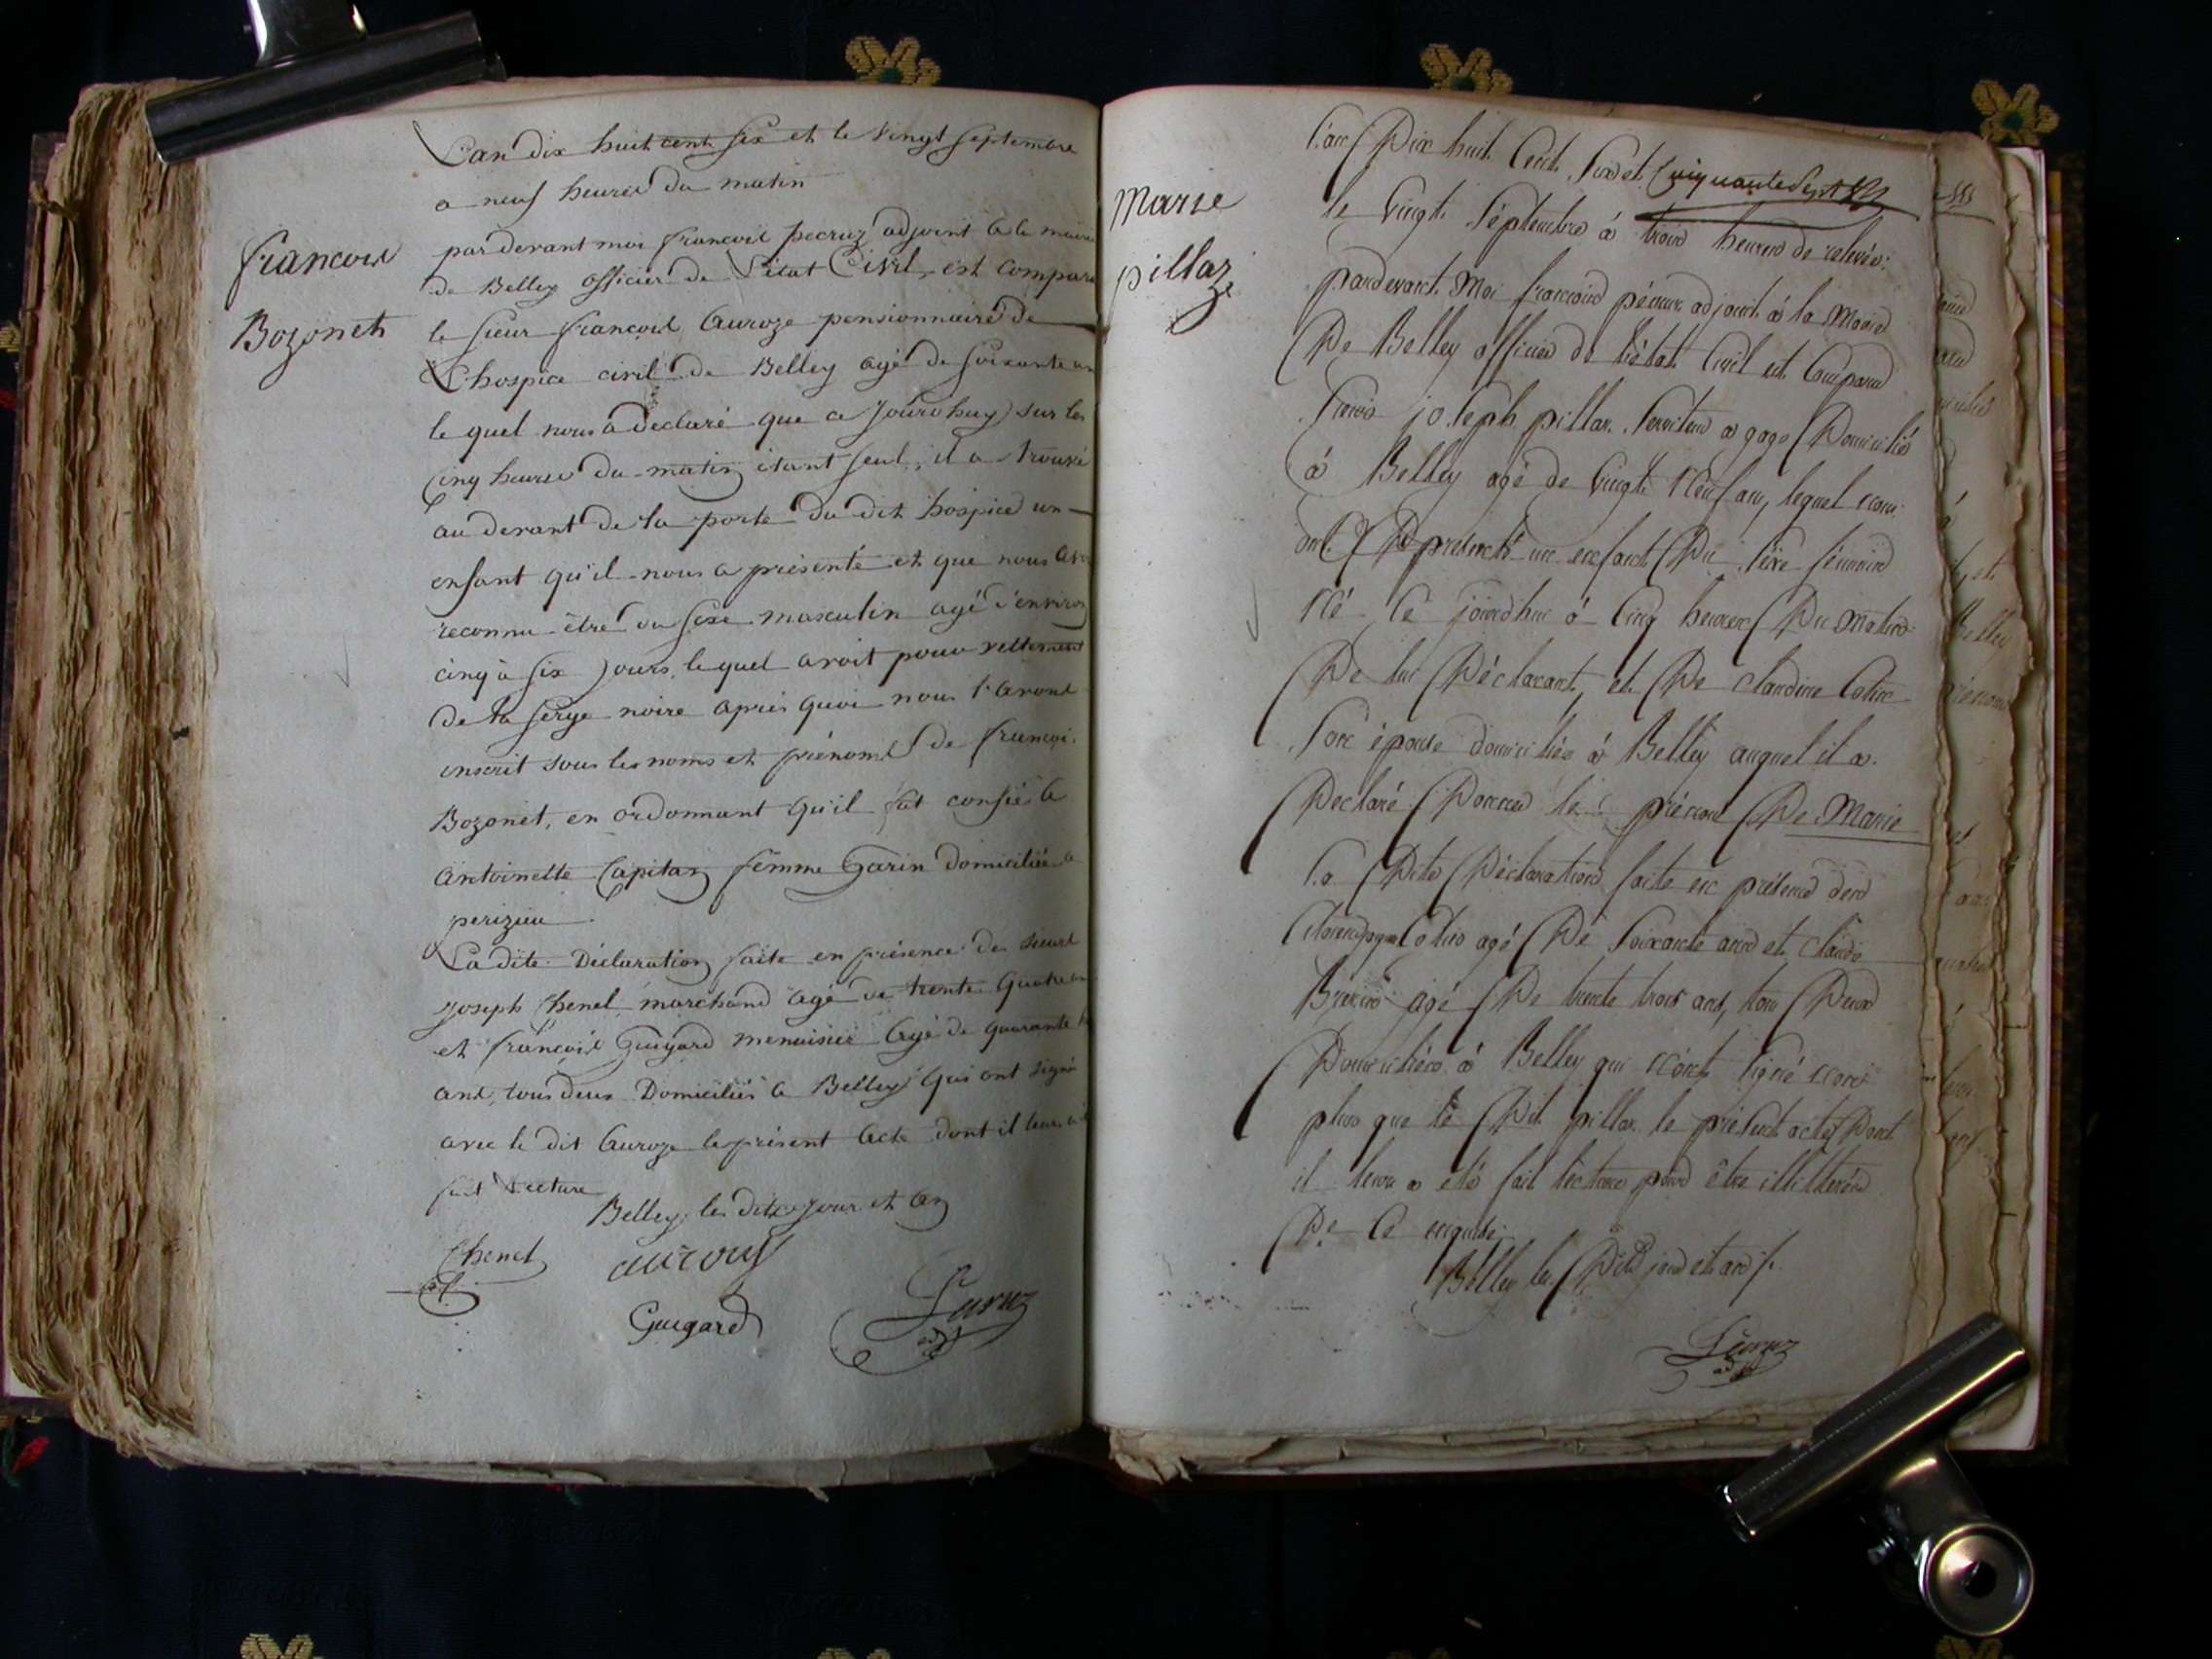 L'an dix huit cent six et le vingt septembre
a neuf heures du matin
francois
Bozonet
par devant moi francois pecruz adjoint a la mairie
de Belley officier de l'état Civil, est comparu
le sieur francois auroze pensionnaire de
L'hospice civil de Belley agé de soixante an
le quel nous a declaré que ce jourdhuy sur les
cinq heures du matin étant seul, il a trouvé
au devant de la porte du dit hospice un
enfant qu'il nous a présenté et que nous avo
reconnu être du sexe masculin agé d'environ
cinq à six jours, le quel avoit pour vettement
de la serge noire après quoi nous l'avons
inscrit sous les noms et prénoms de françoi
Bozonet, en ordonnant qu'il fut confié a
antoinette Capitan femme Garin domiciliée a
perizieu
La dite Déclaration faite en présence des sieurs
Joseph Chenel marchand agé de trente quatre an
et francois Guigard menuisier agé de quarante
ans, tous deux Domiciliés a Belley qui ont signé
avec le dit auroze le présent acte dont il leur a
fait lecture
Belley les dits jour et an
Chenel auroux
Guigard Pecruz
adj
Marie
pillaz
L'an Dix huit Cent Six et Cinquante Sept
le vingt Septembre à trois heures de relevée
pardevant Moi francois pécruz adjoint à la Mairie
De Belley officier de l'état Civil est Comparu
joseph pillaz Serviteur a gage Domicilié
à Belley agé de vingt Neuf ans, lequel nous
présenté un enfant Du Sexe féminin
Né Ce jourdhui à Cinq heures Du Matin
De lui Déclarant, et De Claudine Colin
Son épouse domiciliée à Belley auquel il a
Déclaré Donner le prénom De Marie
La Dite Déclaration faite en présence des
agé De Soixante ans et Claude
agé De trente trois ans, tous Deux
Domiciliés à Belley qui n'ont Signé non
plus que le Dit pillaz le présent acte Dont
il leur a été fait lecture pour être illittérés
De Ce enquis
Belley les Dits jour et an
Pécruz
adj